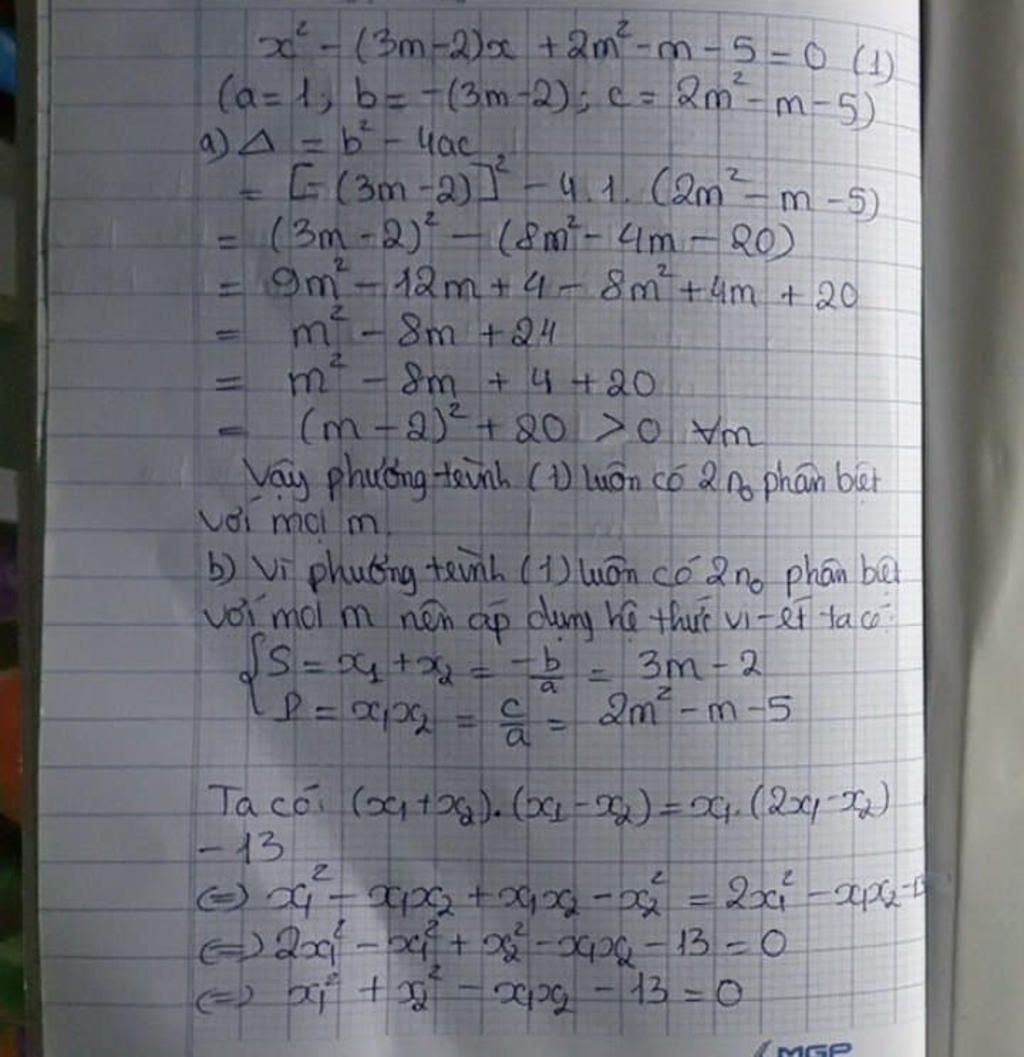 x² - (3m-2)x + 2m² - m - 5 = 0 (1)
(a = 1; b = -(3m-2); c = 2m² - m - 5)
a) Δ = b² - 4ac
= [-(3m-2)]² - 4.1.(2m² - m - 5)
= (3m-2)² - (8m² - 4m - 20)
= 9m² - 12m + 4 - 8m² + 4m + 20
= m² - 8m + 24
= m² - 8m + 4 + 20
= (m-2)² + 20 > 0 ∀m
Vậy phương trình (1) luôn có 2 n₀ phân biệt
với mọi m.
b) Vì phương trình (1) luôn có 2 n₀ phân biệt
với mọi m nên áp dụng hệ thức vi-ét ta có:
{S = x₁ + x₂ = -b/a = 3m - 2
P = x₁x₂ = c/a = 2m² - m - 5
Ta có: (x₁+x₂).(x₁-x₂) = x₁.(2x₁-x₂)
-13
⇔ x₁² - x₁x₂ + x₁x₂ - x₂² = 2x₁² - x₁x₂ - 13
⇔ 2x₁² - x₁² + x₂² - x₁x₂ - 13 = 0
⇔ x₁² + x₂² - x₁x₂ - 13 = 0
MGP